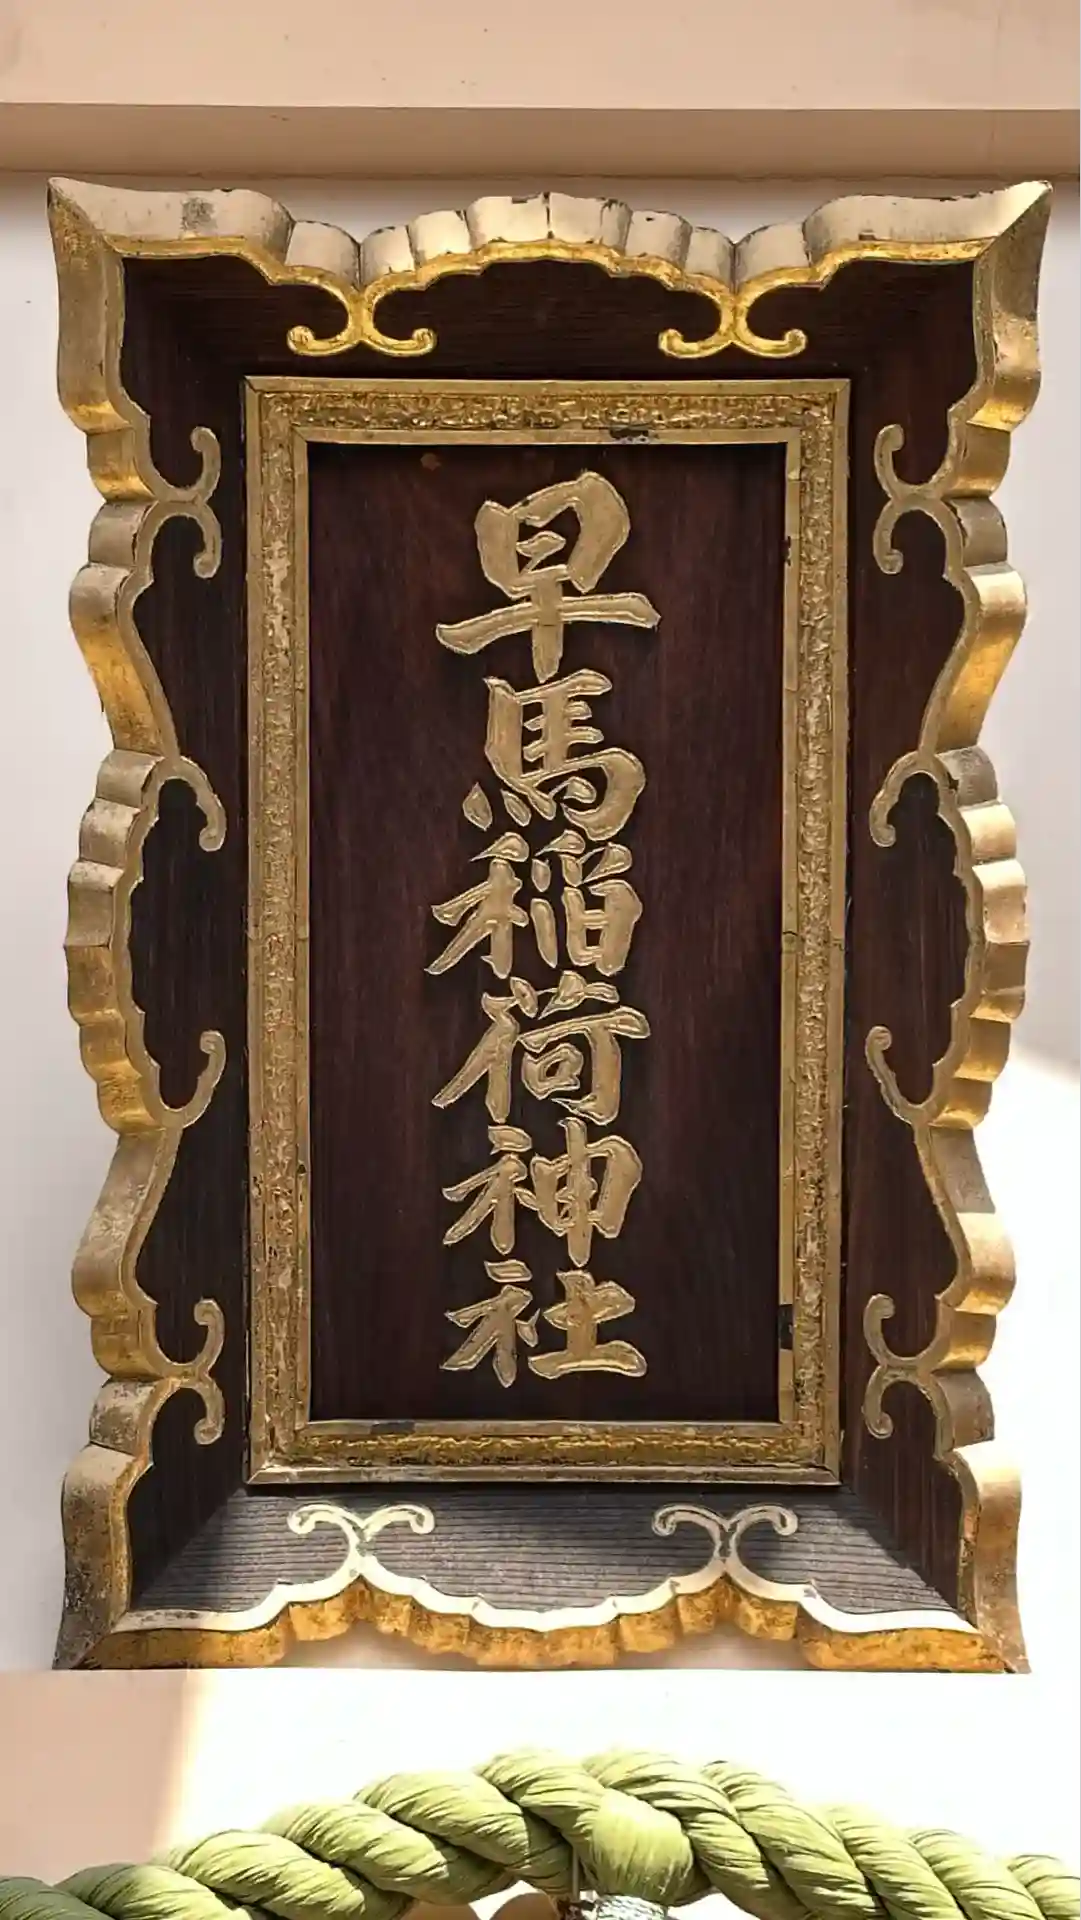 早馬稲荷神社